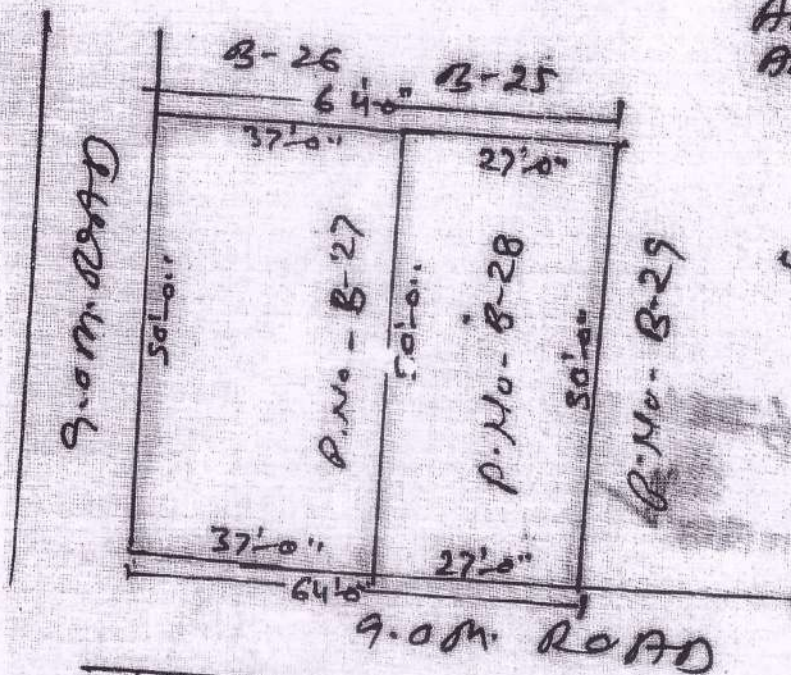 B-26
B-25
64'-0"
37'-0"
27'-0"
9.0 M. ROAD
50'-0"
P.No - B-27
50'-0"
P.No - B-28
50'-0"
P.No - B-29
37'-0"
27'-0"
64'-0"
9.0 M. ROAD